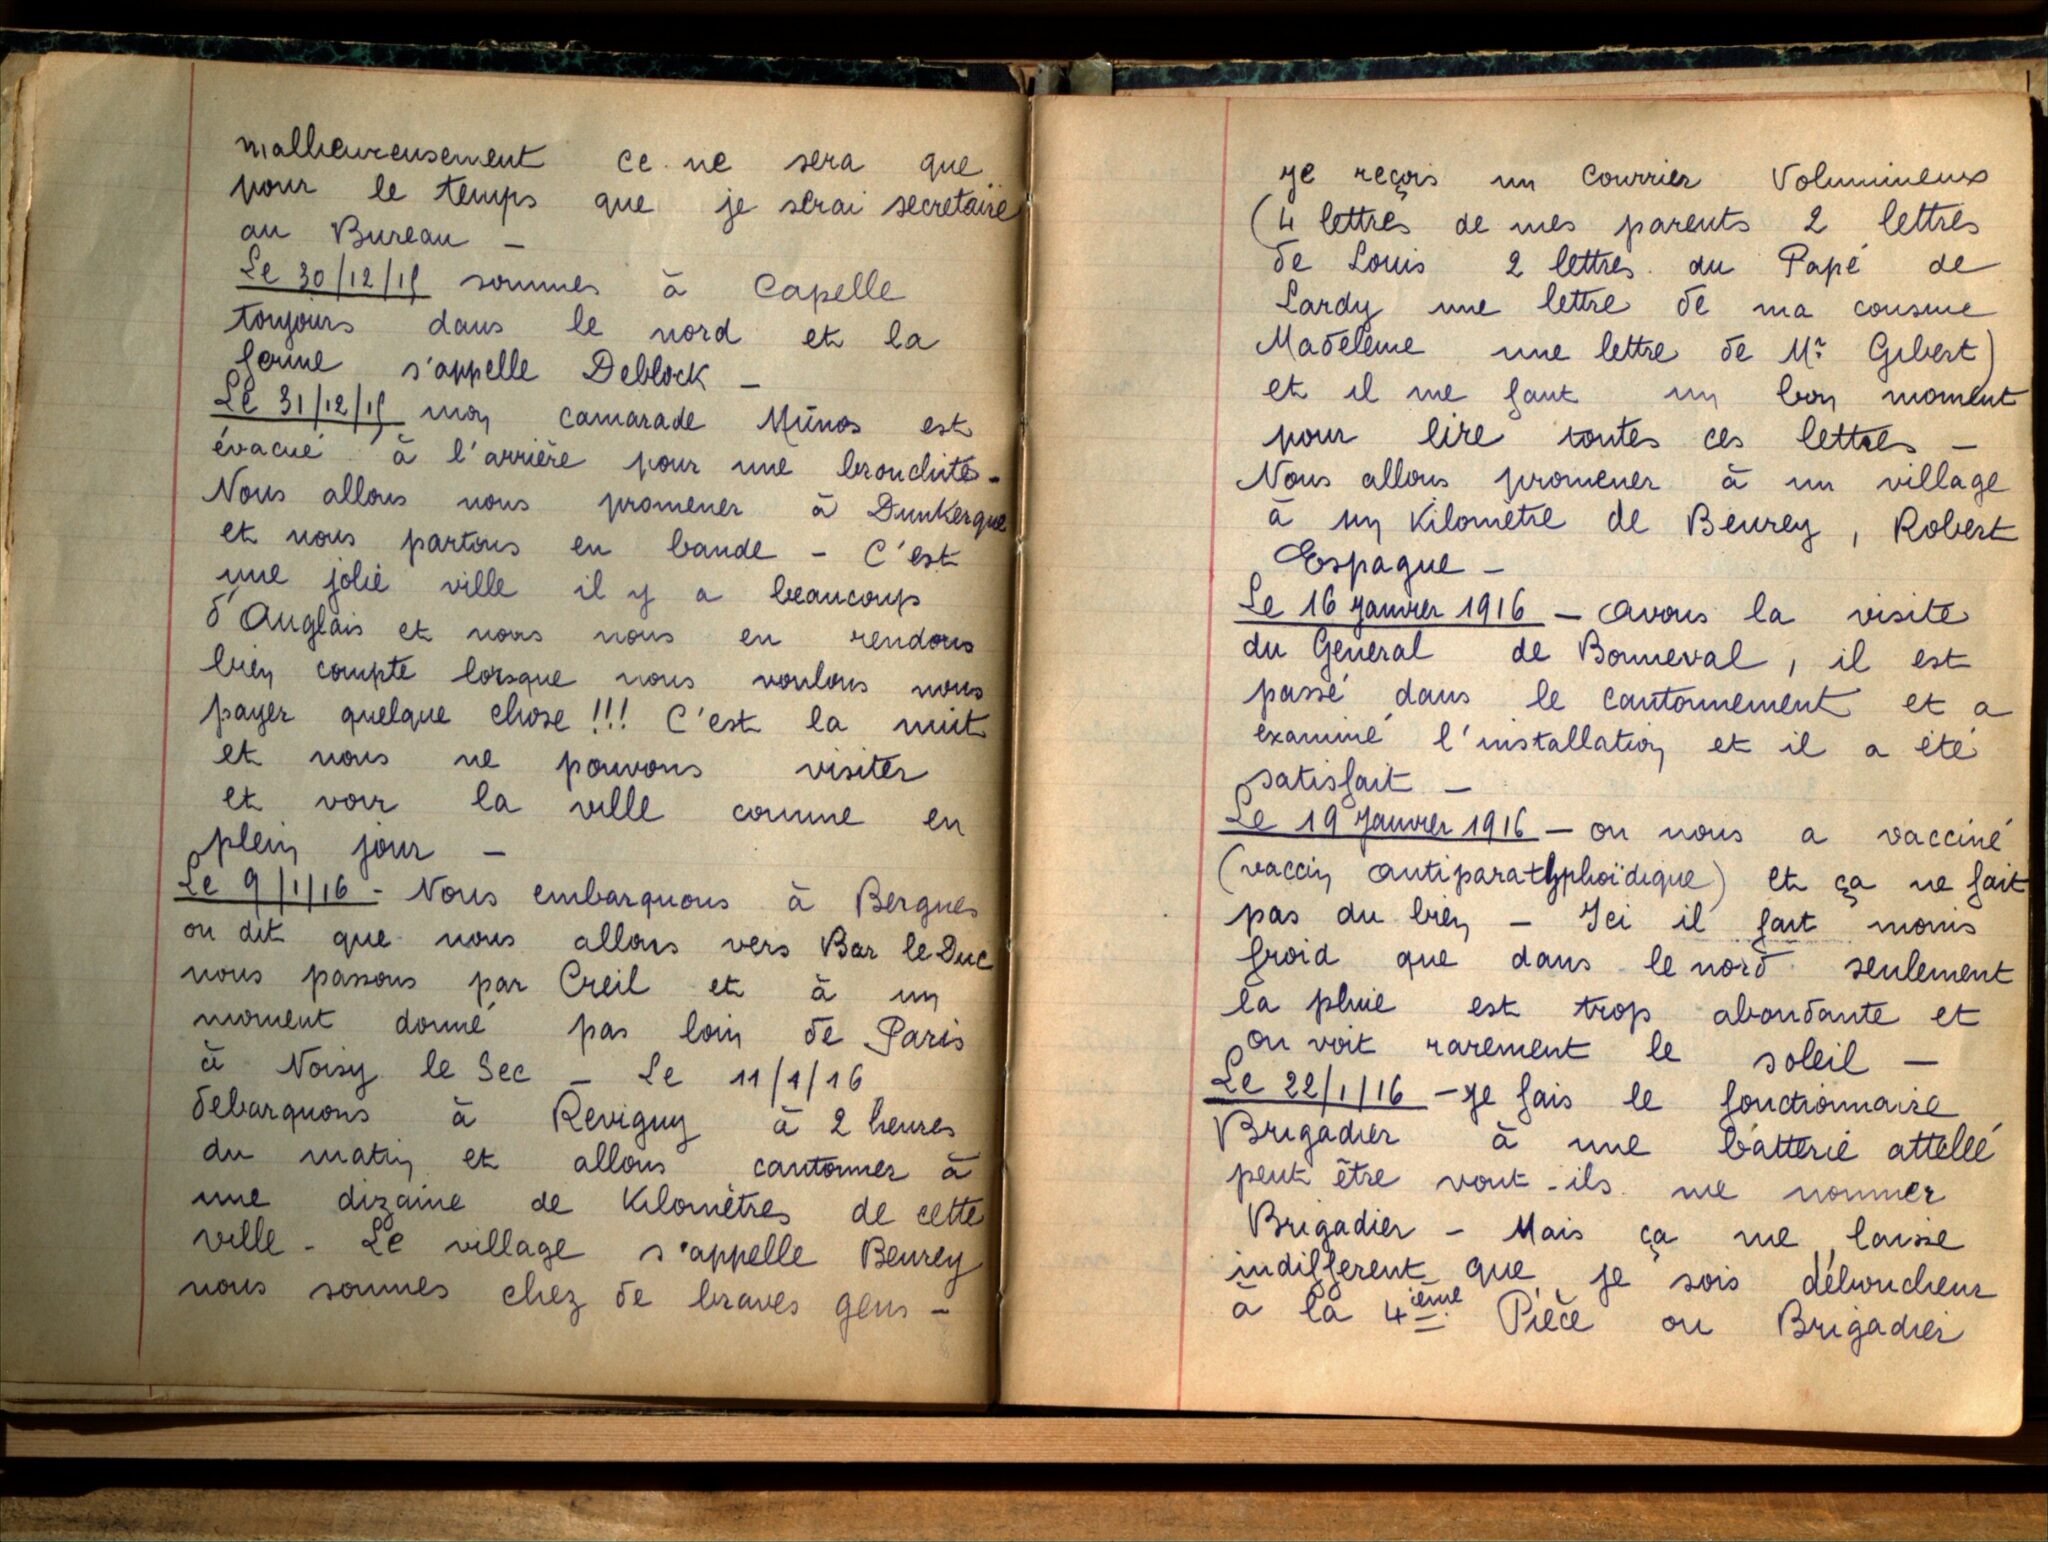 malheureusement ce ne sera que
pour le temps que je serai secretaire
au Bureau -
Le 30/12/15 sommes à Capelle
toujours dans le nord et la
ferme s'appelle Deblock -
Le 31/12/15 mon camarade Mûnos est
évacué à l'arrière pour une bronchite -
Nous allons nous promener à Dunkerque
et nous partons en bande - C'est
une jolie ville il y a beaucoup
d'Anglais et nous nous en rendons
bien compte lorsque nous voulons nous
payer quelque chose !!! C'est la nuit
et nous ne pouvons visiter
et voir la ville comme en
plein jour -
Le 9/1/16 - Nous embarquons à Bergues
on dit que nous allons vers Bar le Duc
nous passons par Creil et à un
moment donné pas loin de Paris
à Noisy le Sec - Le 11/1/16
debarquons à Revigny à 2 heures
du matin et allons cantonner à
une dizaine de Kilomètres de cette
ville - Le village s'appelle Beurey
nous sommes chez de braves gens -
je reçois un courrier Volumineux
(4 lettres de mes parents 2 lettres
de Louis 2 lettres du Papé de
Lardy une lettre de ma cousine
Madeleine une lettre de Mr Gibert)
et il me faut un bon moment
pour lire toutes ces lettres -
Nous allons promener à un village
à un Kilomètre de Beurey, Robert
Espagne -
Le 16 Janvier 1916 - avons la visite
du Général de Bonneval, il est
passé dans le cantonnement et a
examiné l'installation et il a été
satisfait -
Le 19 Janvier 1916 - on nous a vacciné
(vaccin antiparathyphoïdique) et ça ne fait
pas du bien - Ici il fait moins
froid que dans le nord seulement
la pluie est trop abondante et
on voit rarement le soleil -
Le 22/1/16 - Je fais le fonctionnaire
Brigadier à une batterie attelée
peut être vont-ils me nommer
Brigadier - Mais ça me laisse
indifferent que je sois déboucheur
à la 4ième Pièce ou Brigadier